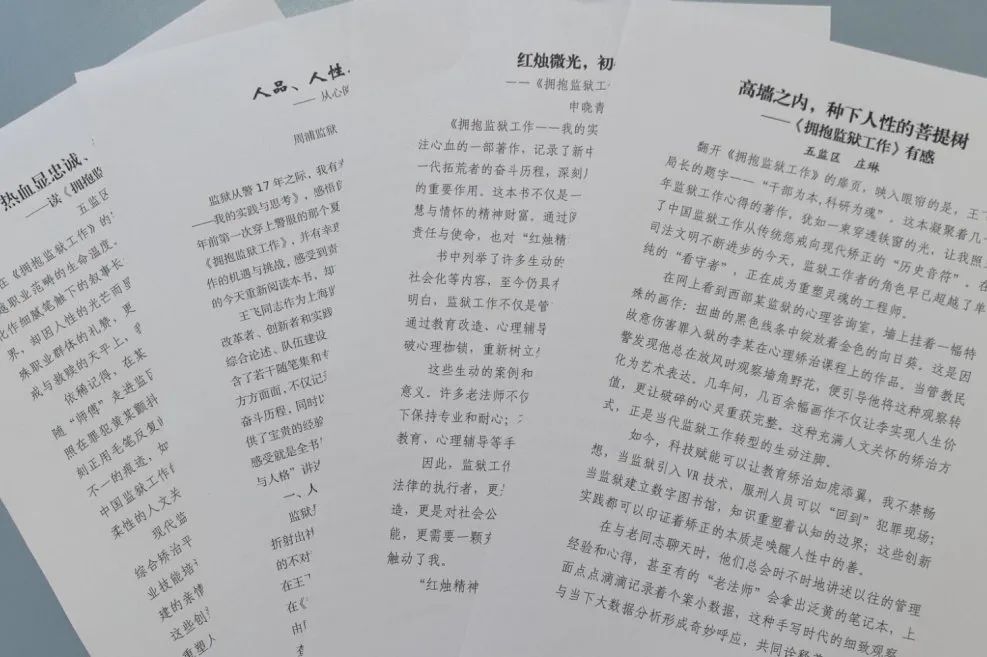 热血显忠诚、
——读《拥抱监
五监区
在《拥抱监狱工作》的
越职业范畴的生命温度。
化作细腻笔触下的叙事长
界，却因人性的光芒而
殊职业群体的礼赞，更
戒与救赎的天平上，
依稀记得，在某
随“师傅”走进监
照在罪犯黄某颤抖
刻正用毛笔反复
不一的痕迹，如
中国监狱工作
柔性的人文关
现代监
综合矫治平
业技能培
建的亲情
这些创
重塑人
人品、人性
—— 从心
周浦监狱
监狱从警 17 年之际，我有
——我的实践与思考》，感悟
年前第一次穿上警服的那个夏
《拥抱监狱工作》，并有幸
作的机遇与挑战，感受到责
的今天重新阅读本书，知
王飞同志作为上海监
改革者、创新者和实践
综合论述、队伍建设
含了若干随笔集和专
方方面面，不仅记
奋斗历程，同时
供了宝贵的经验
感受就是全书
与人格”讲
一、人
监狱
折射出
的不对
在王飞
在《
由
红烛微光，初
——《拥抱监狱工
申晓青
《拥抱监狱工作——我的实
注心血的一部著作，记录了新中
一代拓荒者的奋斗历程，深刻
的重要作用。这本书不仅是一
慧与情怀的精神财富。通过
责任与使命，也对“红烛精
书中列举了许多生动的
社会化等内容，至今仍具有
明白，监狱工作不仅是管
通过教育改造、心理辅导
破心理枷锁，重新树立
这些生动的案例和
意义。许多老法师不仅
下保持专业和耐心；
教育、心理辅导等手
因此，监狱工作
法律的执行者，更是
造，更是对社会公
能，更需要一颗
触动了我。
“红烛精神
高墙之内，种下人性的菩提树
——《拥抱监狱工作》有感
五监区 庄琳
翻开《拥抱监狱工作》的扉页，映入眼帘的是，王飞
局长的题字——“干部为本,科研为魂”。这本凝聚着几十
年监狱工作心得的著作，犹如一束穿透铁窗的光，让我照见
了中国监狱工作从传统惩戒向现代矫正的“历史音符”。在
司法文明不断进步的今天，监狱工作者的角色早已超越了单
纯的“看守者”，正在成为重塑灵魂的工程师。
在网上看到西部某监狱的心理咨询室，墙上挂着一幅特
殊的画作：扭曲的黑色线条中绽放着金色的向日葵。这是因
故意伤害罪入狱的李某在心理矫治课程上的作品。当管教民
警发现他总在放风时观察墙角野花，便引导他将这种观察转
化为艺术表达。几年间，几百余幅画作不仅让李实现人生价
值，更让破碎的心灵重获完整。这种充满人文关怀的矫治方
式，正是当代监狱工作转型的生动注脚。
如今，科技赋能可以让教育矫治如虎添翼，我不禁畅
想，当监狱引入 VR 技术，服刑人员可以“回到”犯罪现场；
当监狱建立数字图书馆，知识重塑着认知的边界；这些创新
实践都可以印证着矫正的本质是唤醒人性中的善。
在与老同志聊天时，他们总会时不时地讲述以往的管理
经验和心得，甚至有的“老法师”会拿出泛黄的笔记本，上
面点点滴滴记录着个案小数据，这种手写时代的细致观察
与当下大数据分析形成奇妙呼应，共同诠释着